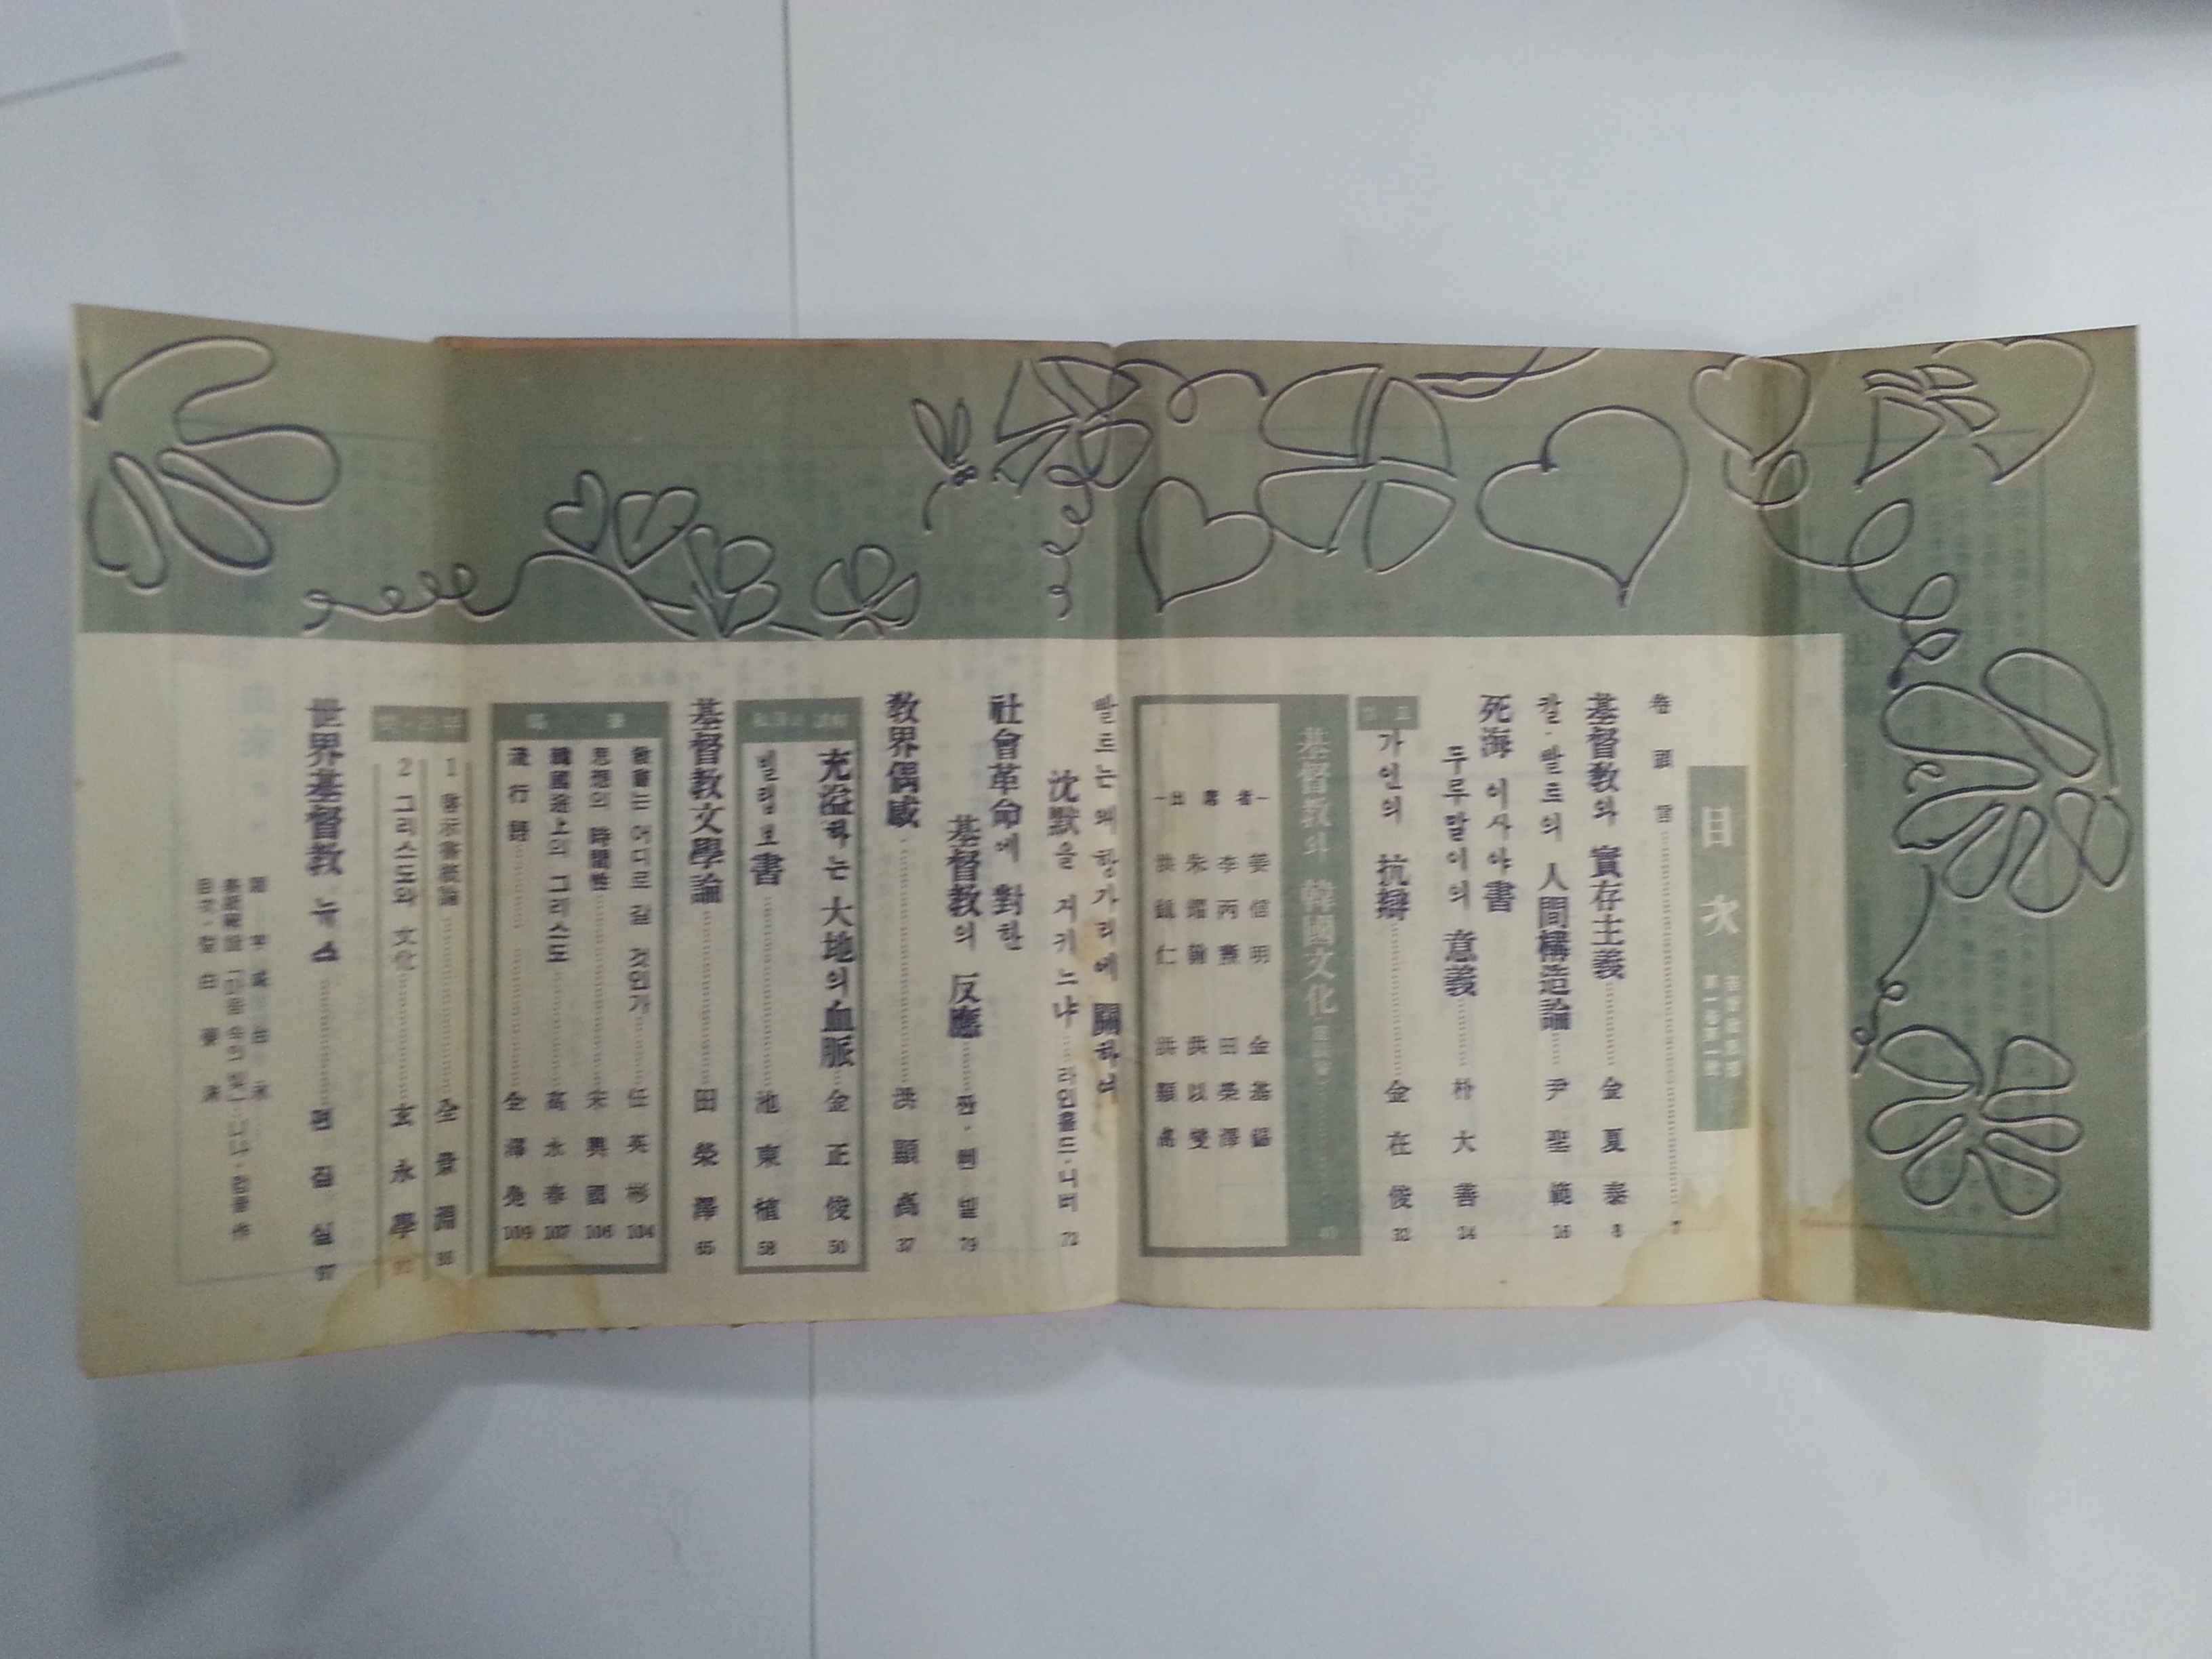 目次
第一卷第一號
卷頭言 7
基督教와 實存主義 金夏泰 8
칼·발트의 人間構造論 尹聖範 16
死海 이사야書
두루말이의 意義 朴大善 24
가인의 抗辯 金在俊 32
基督教와 韓國文化 座談會 40
—出席者—
姜信明 金基錫
李丙燾 田榮澤
朱耀翰 洪以燮
洪鎭仁 洪顯卨
발트는 왜 항가리에 關하여
沈默을 지키느냐 라인홀드·니버 72
社會革命에 對한
基督教의 反應 판·삘 79
敎界偶感 洪顯卨 37
充溢하는 大地의 血脈 金正俊 50
빌립보書 池東植 58
基督教文學論 田榮澤 65
教會는 어디로 갈 것인가 任英彬 104
思想의 時間性 宋興國 106
韓國途上의 그리스도 高永春 107
流行語 全澤堯 109
1 啓示書槪論 全景淵 88
2 그리스도와 文化 玄永學 92
世界基督教 뉴스 편집실 97